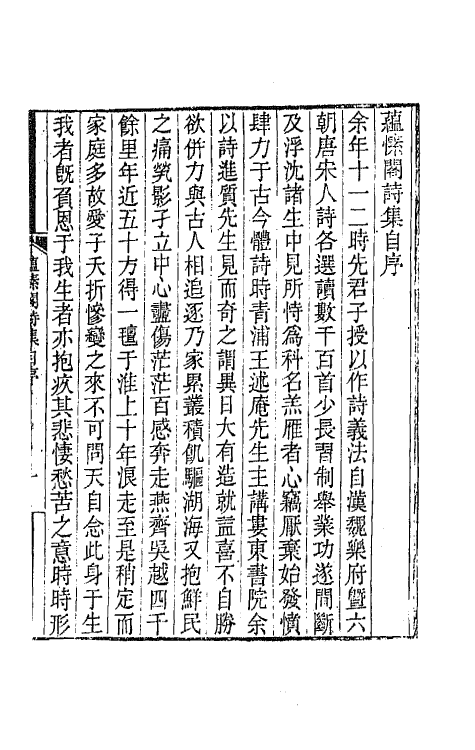 蘊愫閣詩集自序
余年十一二時先君子授以作詩義法自漢魏樂府曁六
朝唐宋人詩各選讀數千百首少長習制舉業功遂間斷
及浮沈諸生中見所恃爲科名羔雁者心竊厭棄始發憤
肆力于古今體詩時青浦王述庵先生主講婁東書院余
以詩進質先生見而奇之謂異日大有造就益喜不自勝
欲併力與古人相追逐乃家累叢積飢驅湖海又抱鮮民
之痛煢影孑立中心盡傷茫茫百感奔走燕齊吳越四千
餘里年近五十方得一氊于淮上十年浪走至是稍定而
家庭多故愛子夭折慘變之來不可問天自念此身于生
我者旣負恩于我生者亦抱疚其悲悽愁苦之意時時形
蘊愫閣詩集自序
一